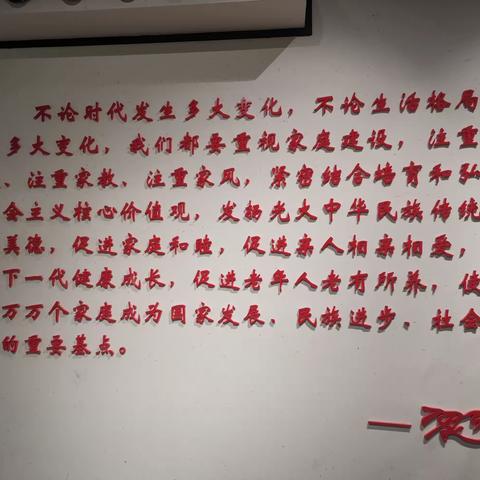 不论时代发生多大变化，不论生活格局
多大变化，我们都要重视家庭建设，注重
、注重家教、注重家风，紧密结合培育和弘
会主义核心价值观，发扬光大中华民族传统
美德，促进家庭和睦，促进亲人相亲相爱，
下一代健康成长，促进老年人老有所养，使
万万个家庭成为国家发展、民族进步、社会
的重要基点。